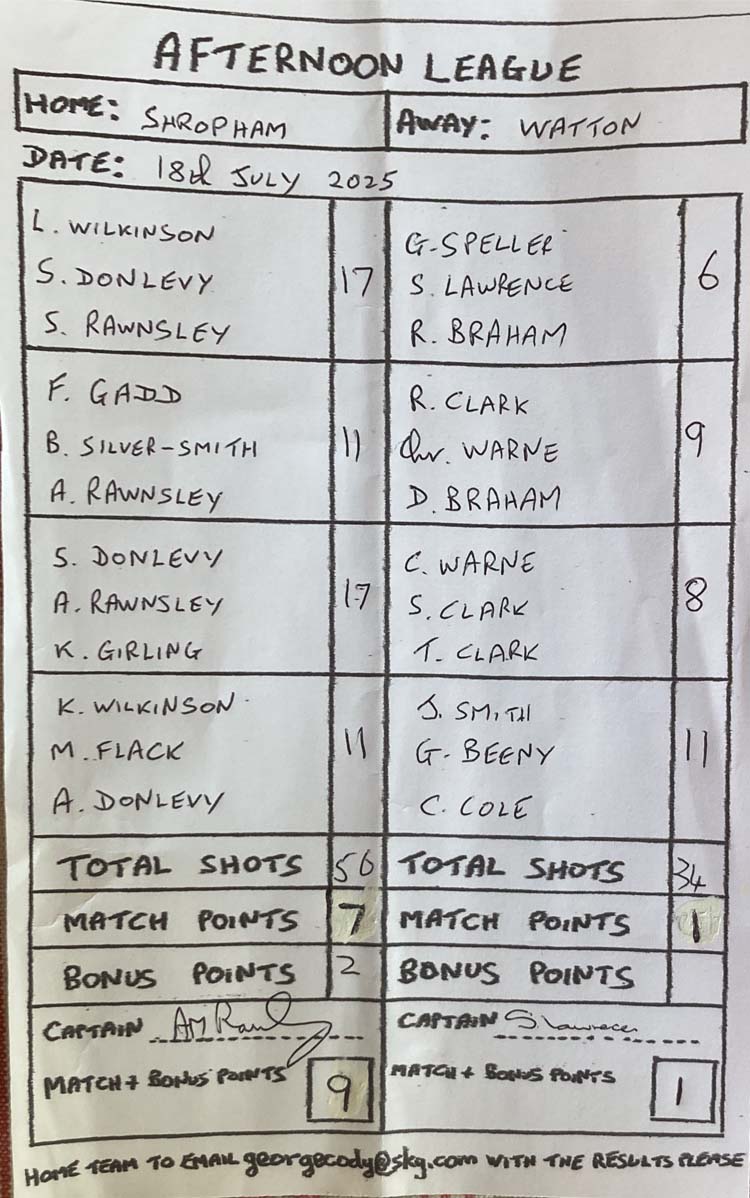 AFTERNOON LEAGUE
HOME: SHROPHAM AWAY: WATTON
DATE: 18th JULY 2025
L. WILKINSON
S. DONLEVY
S. RAWNSLEY
17
G. SPELLER
S. LAWRENCE
R. BRAHAM
6
F. GADD
B. SILVER-SMITH
A. RAWNSLEY
11
R. CLARK
Chr. WARNE
D. BRAHAM
9
S. DONLEVY
A. RAWNSLEY
K. GIRLING
17
C. WARNE
S. CLARK
T. CLARK
8
K. WILKINSON
M. FLACK
A. DONLEVY
11
J. SMITH
G. BEENY
C. COLE
11
TOTAL SHOTS 56 TOTAL SHOTS 34
MATCH POINTS 7 MATCH POINTS 1
BONUS POINTS 2 BONUS POINTS
CAPTAIN CAPTAIN S Lawrence
MATCH + BONUS POINTS 9 MATCH + BONUS POINTS 1
HOME TEAM TO EMAIL georgecody@sky.com WITH THE RESULTS PLEASE